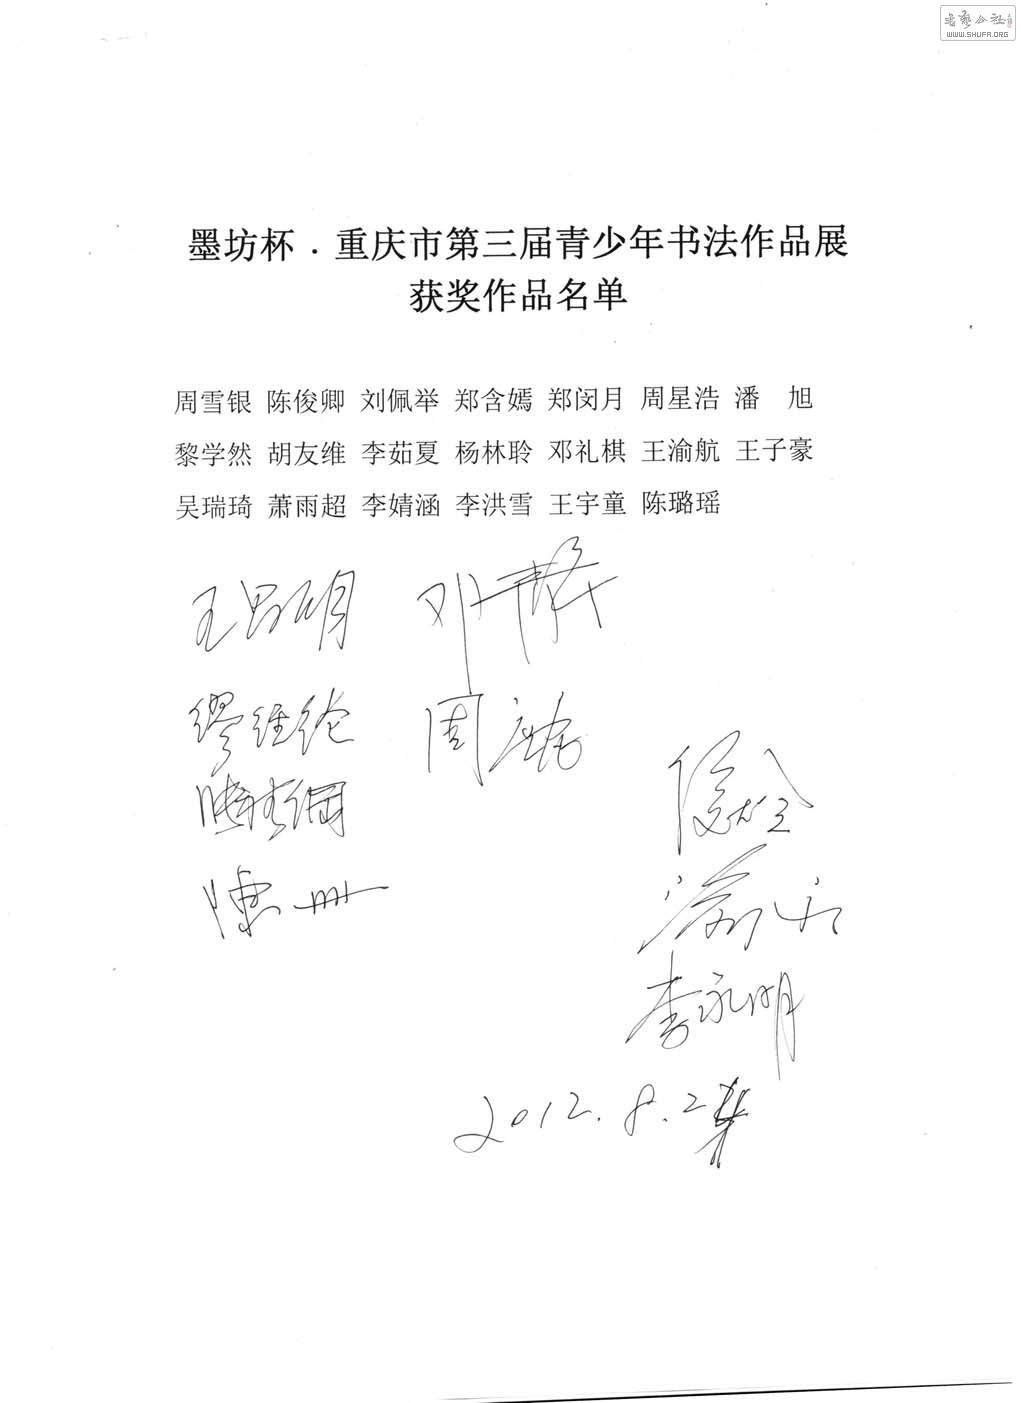 书艺公社
WWW.SHUFA.ORG
墨坊杯．重庆市第三届青少年书法作品展
获奖作品名单
周雪银 陈俊卿 刘佩举 郑含嫣 郑闵月 周星浩 潘　旭
黎学然 胡友维 李茹夏 杨林聆 邓礼棋 王渝航 王子豪
吴瑞琦 萧雨超 李婧涵 李洪雪 王宇童 陈璐瑶
缪经纶
周
陳
李永明
2012.8.2